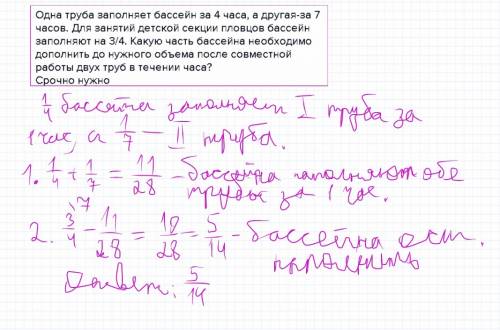 Одна труба заполняет бассейн за 4 часа, а другая-за 7
часов. Для занятий детской секции пловцов бассейн
заполняют на 3/4. Какую часть бассейна необходимо
дополнить до нужного объема после совместной
работы двух труб в течении часа?
Срочно нужно
1/4 бассейна заполняет I труба за
1 час, а 1/7 – II труба.
1. 1/4 + 1/7 = 11/28 – бассейна наполняют обе
трубы за 1 час.
2. 3/4 \7 - 11/28 = 10/28 = 5/14 - бассейна ост.
наполнить
Ответ: 5/14